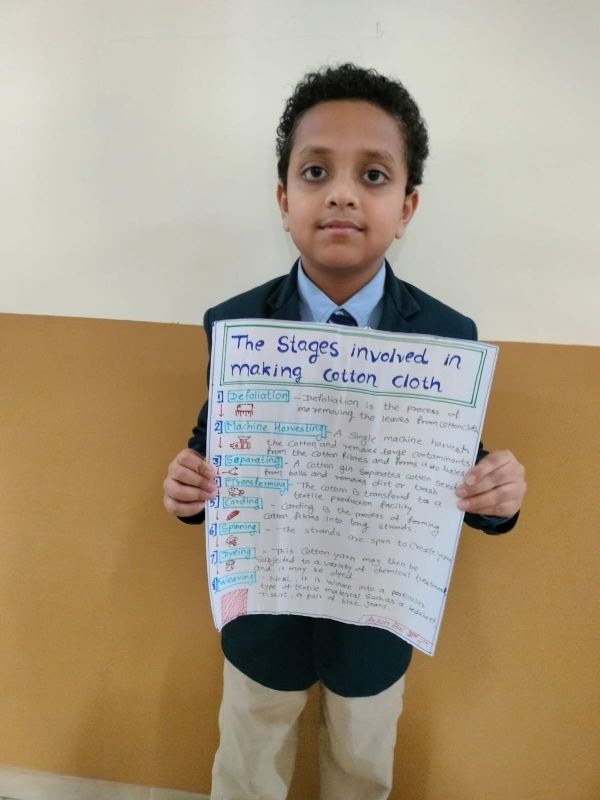 The Stages involved in
making cotton cloth
1 Defoliation - Defoliation is the process of
removing the leaves from cotton
2 Machine Harvesting - A single machine harvests
the cotton and removes large contaminants
from the cotton fibres and forms it to bales
3 Separating - A cotton gin separates cotton seeds
from balls and removes dirt or trash
4 Transferring - The cotton is transfered to a
textile production facility
5 Carding - Carding is the process of forming
cotton fibres into long strands
6 Spinning - The strands are spun to create yarn
7 Dyeing - This cotton yarn may then be
subjected to a variety of chemical treatment
and it may be dyed
8 Weaving - Next, it is woven into a particular
type of textile material such as a bedsheet
T-shirt, or pair of blue jeans.